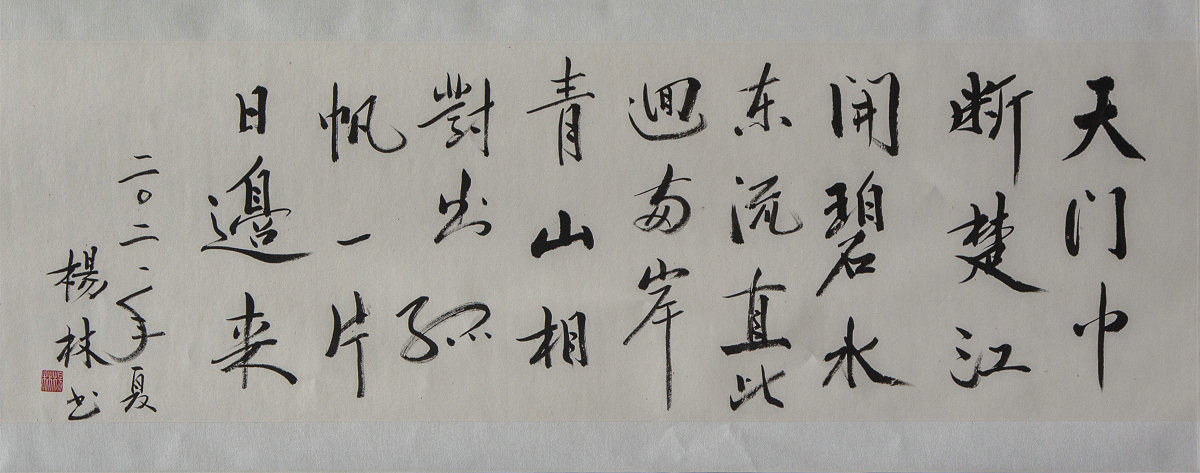 天门中
断楚江
開碧水
东流直此
迴两岸
青山相
對出孤
帆一片
日邊来
二〇二一年夏
楊林书